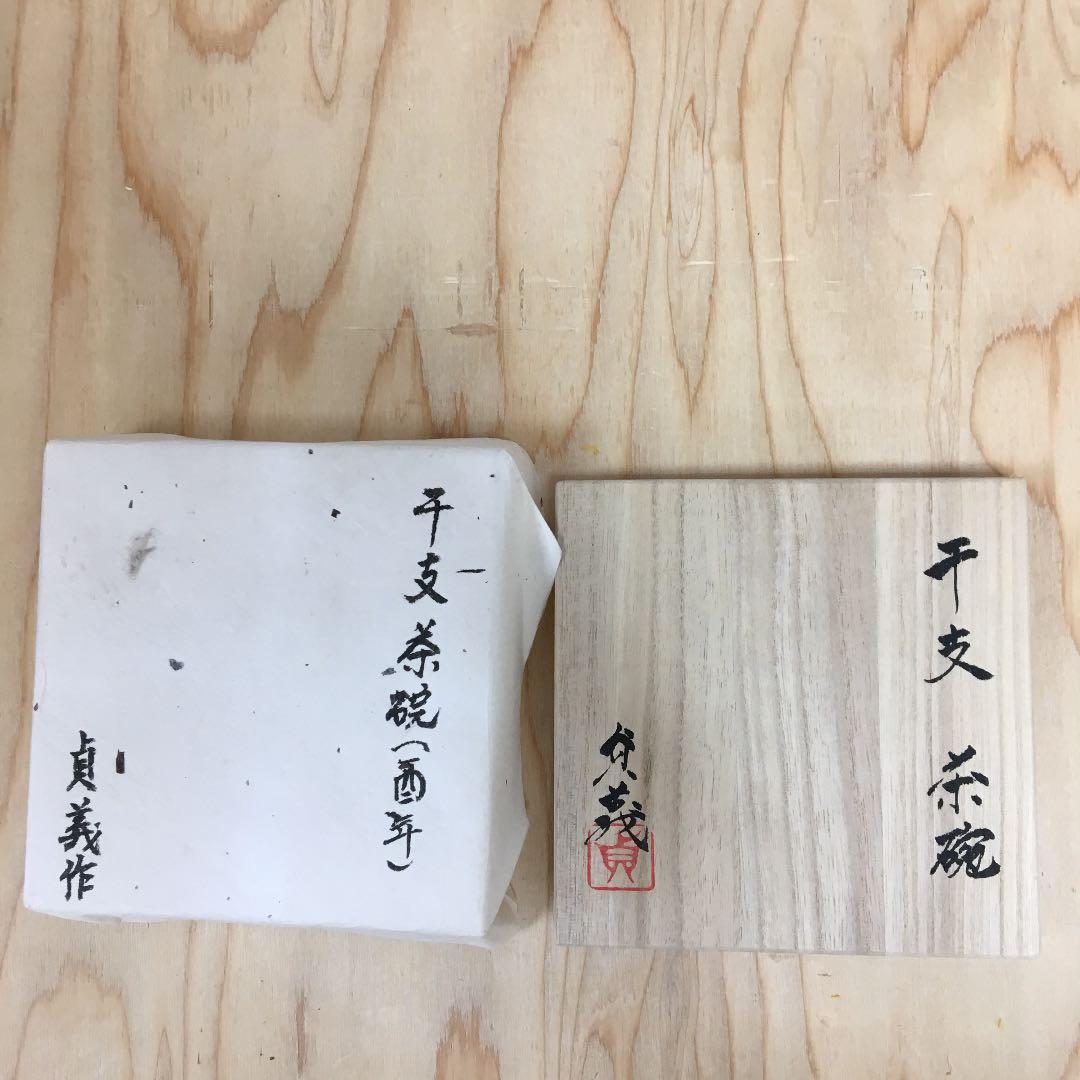 干支茶碗(酉年)
貞義作
干支 茶碗
貞義
貞